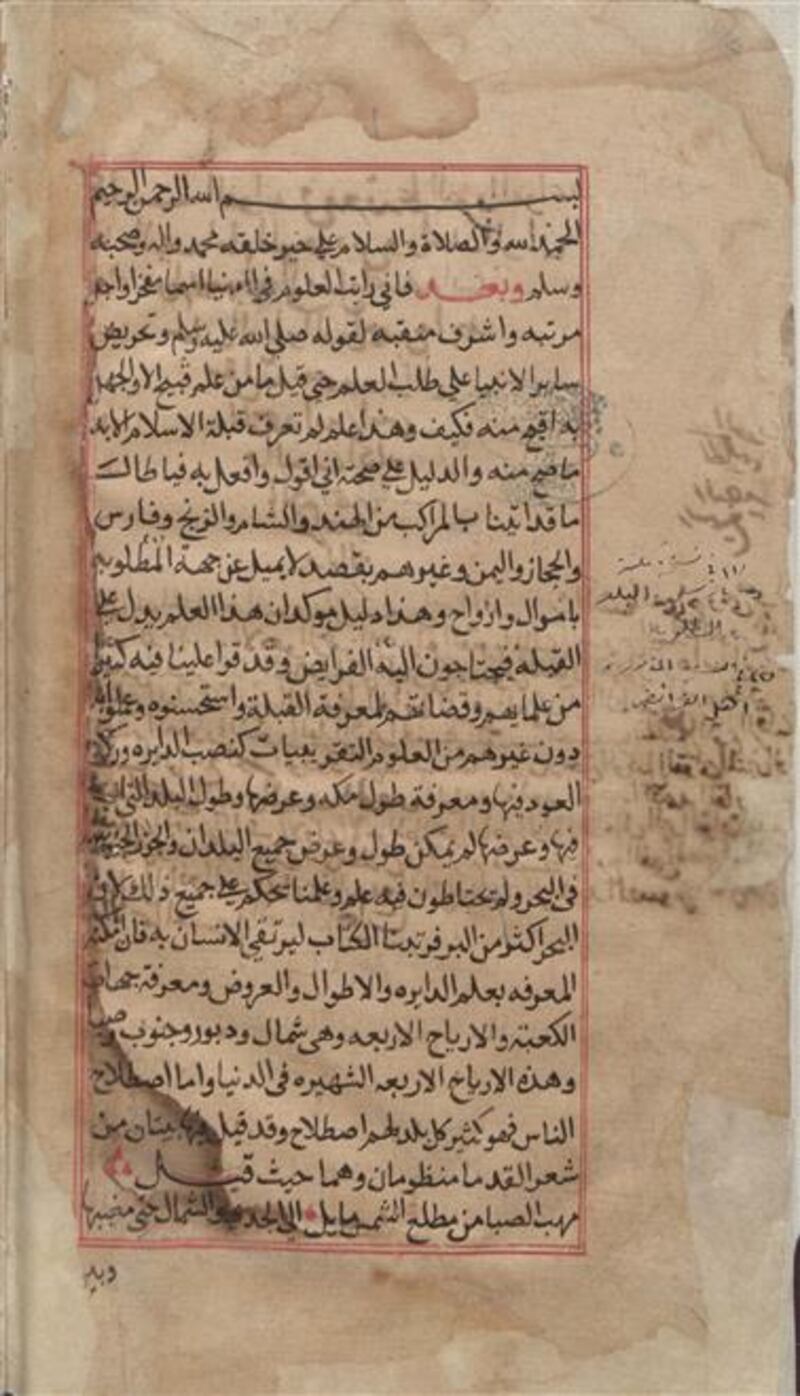 بسم الله الرحمن الرحيم
الحمد لله والصلاة والسلام علي خير خلقه محمد واله وصحبه
وسلم وبعد فاني رايت العلوم في الدنيا
مرتبه واشرف منقبه لقوله صلي الله عليه وسلم وتحريض
ساير الانبيا علي طلب العلم حتي قيل ما من علم قبيح الا والجهل
به اقبح منه فكيف وهذا علم لم تعرف قبلة الاسلام الا به
ما صح منه والدليل علي صحته اني اقول وافعل به فيا طالت
ما قد اتينا بالمراكب من الهند والشام والزنج وفارس
والحجاز واليمن وغيرهم بقصد لا يميل عن جهة المطلوبه
باموال وارواح وهذا دليل موكد ان هذا العلم يدل علي
القبله فيحتاجون اليه الفرايض وقد قروا علينا فيه كثير
من علمايهم وقضاتهم لمعرفة القبلة واستحسنوه وعملوا به
دون غيرهم من العلوم التقريعيات كنصب الدايره وركز
العود فيها ومعرفة طول مكه وعرضها وطول البلد التي
فيها وعرضها لم يمكن طول وعرض جميع البلدان والجزر
في البحر ولم تحتاطون فيه علم وعلمنا يحكم علي جميع ذلك لان
البحر اكثر من البر فرتبنا الكتاب ليرتقي الانسان به فان
المعرفه بعلم الدايره والاطوال والعروض ومعرفة جهات
الكعبة والارياح الاربعه وهي شمال ودبور وجنوب وصبا
وهذه الارياح الاربعه الشهيره في الدنيا واما اصطلاح
الناس فهو كثير كل بلد لهم اصطلاح وقد قيل بيتان من
شعر القدما منظومان وهما حيث قيل
مهب الصبا من مطلع الشمس مايل الي الجدي والشمال حتي مغيبها
وبين